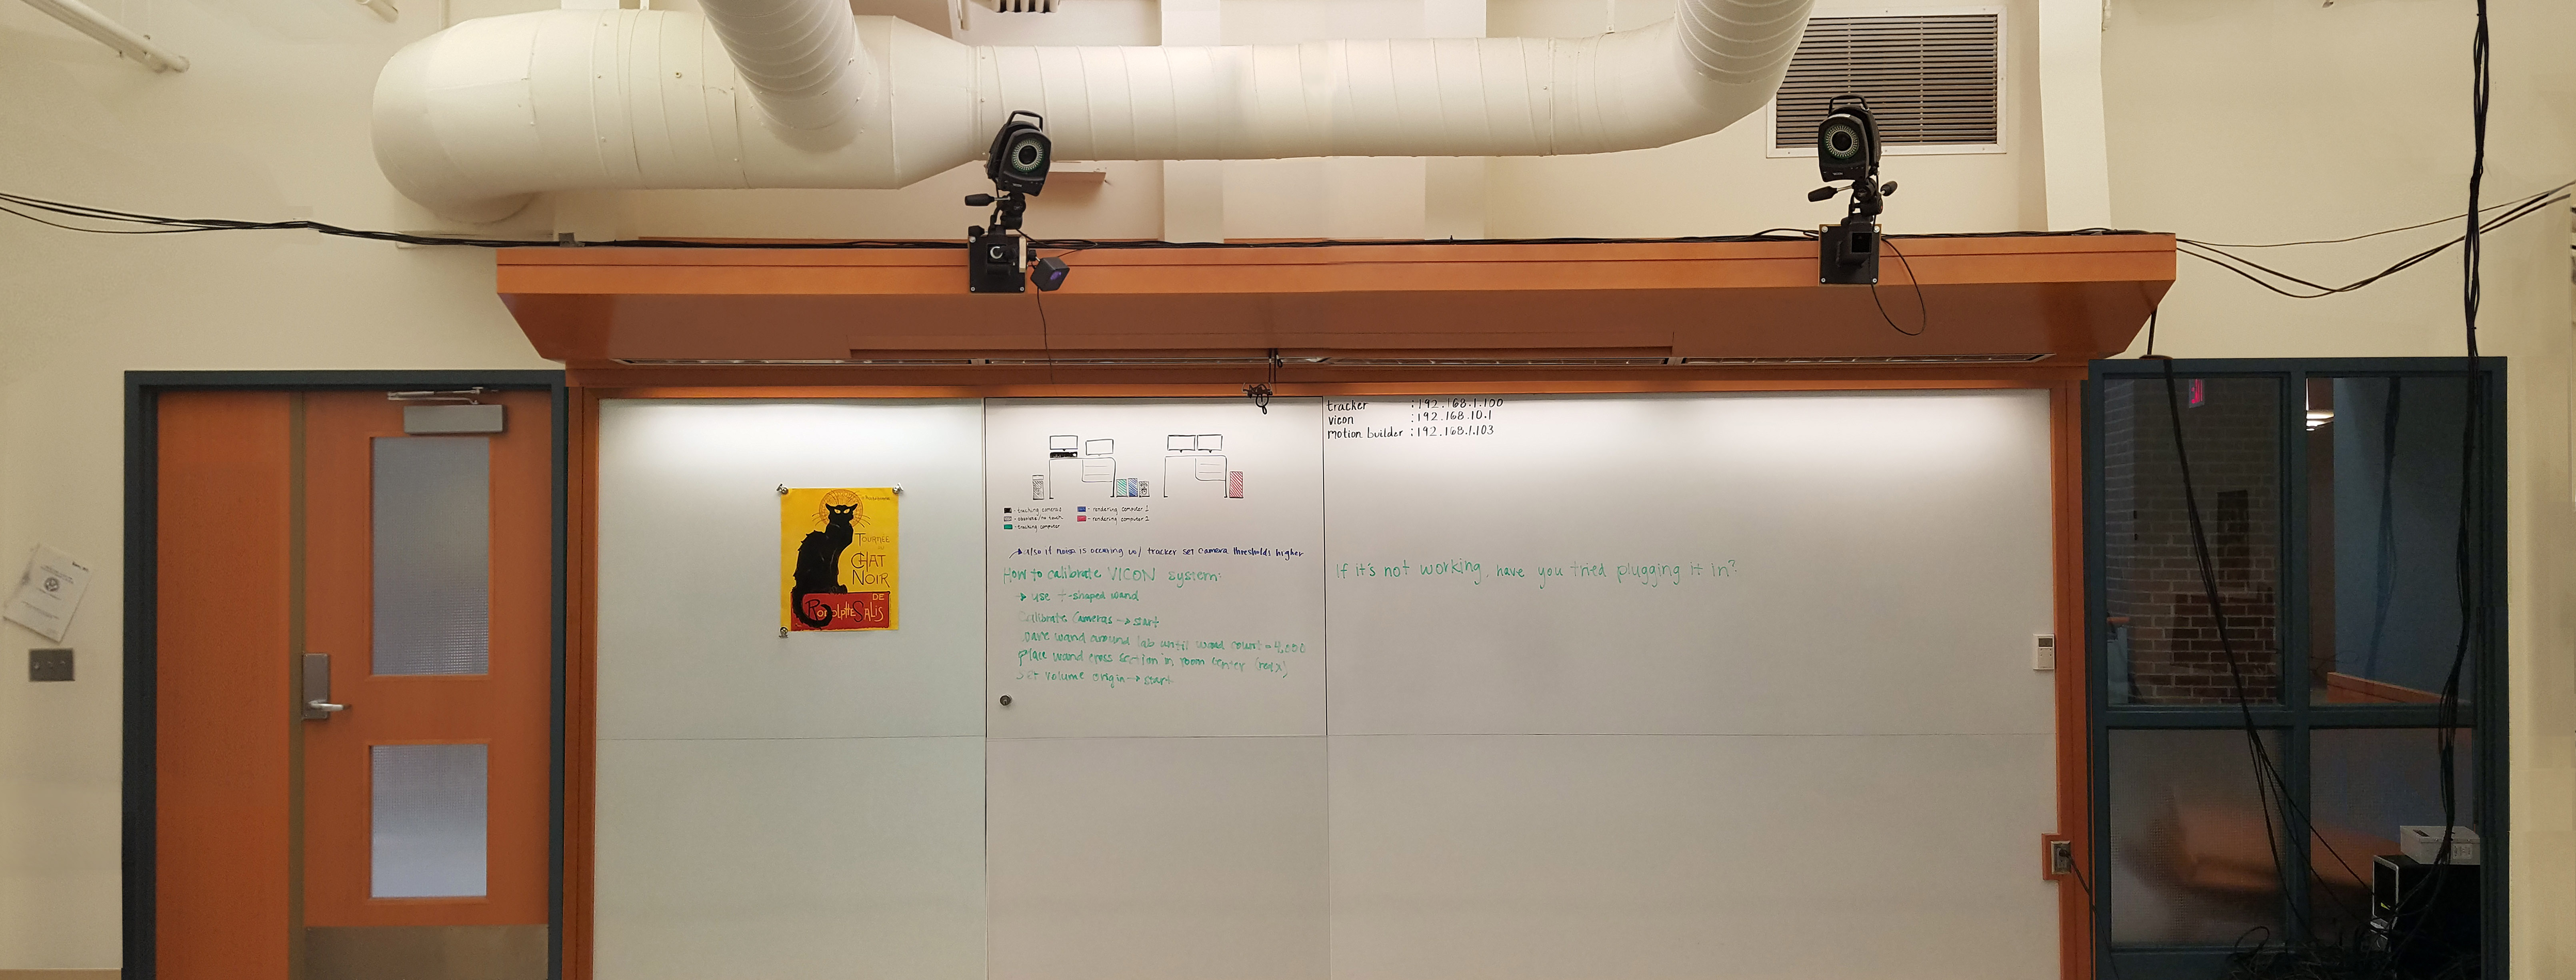 TOURNÉE
DU
CHAT
NOIR
DE
RODOLPHE SALIS
- tracking cameras
- rendering computer 1
- rendering computer 2
- tracking computer
→ also if noise is occuring w/ tracker set camera thresholds higher
How to calibrate VICON system:
→ use t-shaped wand
Calibrate Cameras → start
wave wand around lab until wand count = 4,000
place wand cross section in room center
Set volume origin → start
tracker : 192.168.1.100
vicon : 192.168.10.1
motion builder : 192.168.1.103
If it's not working, have you tried plugging it in?